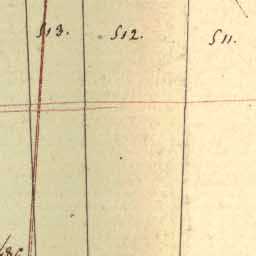 513. 512. 511.